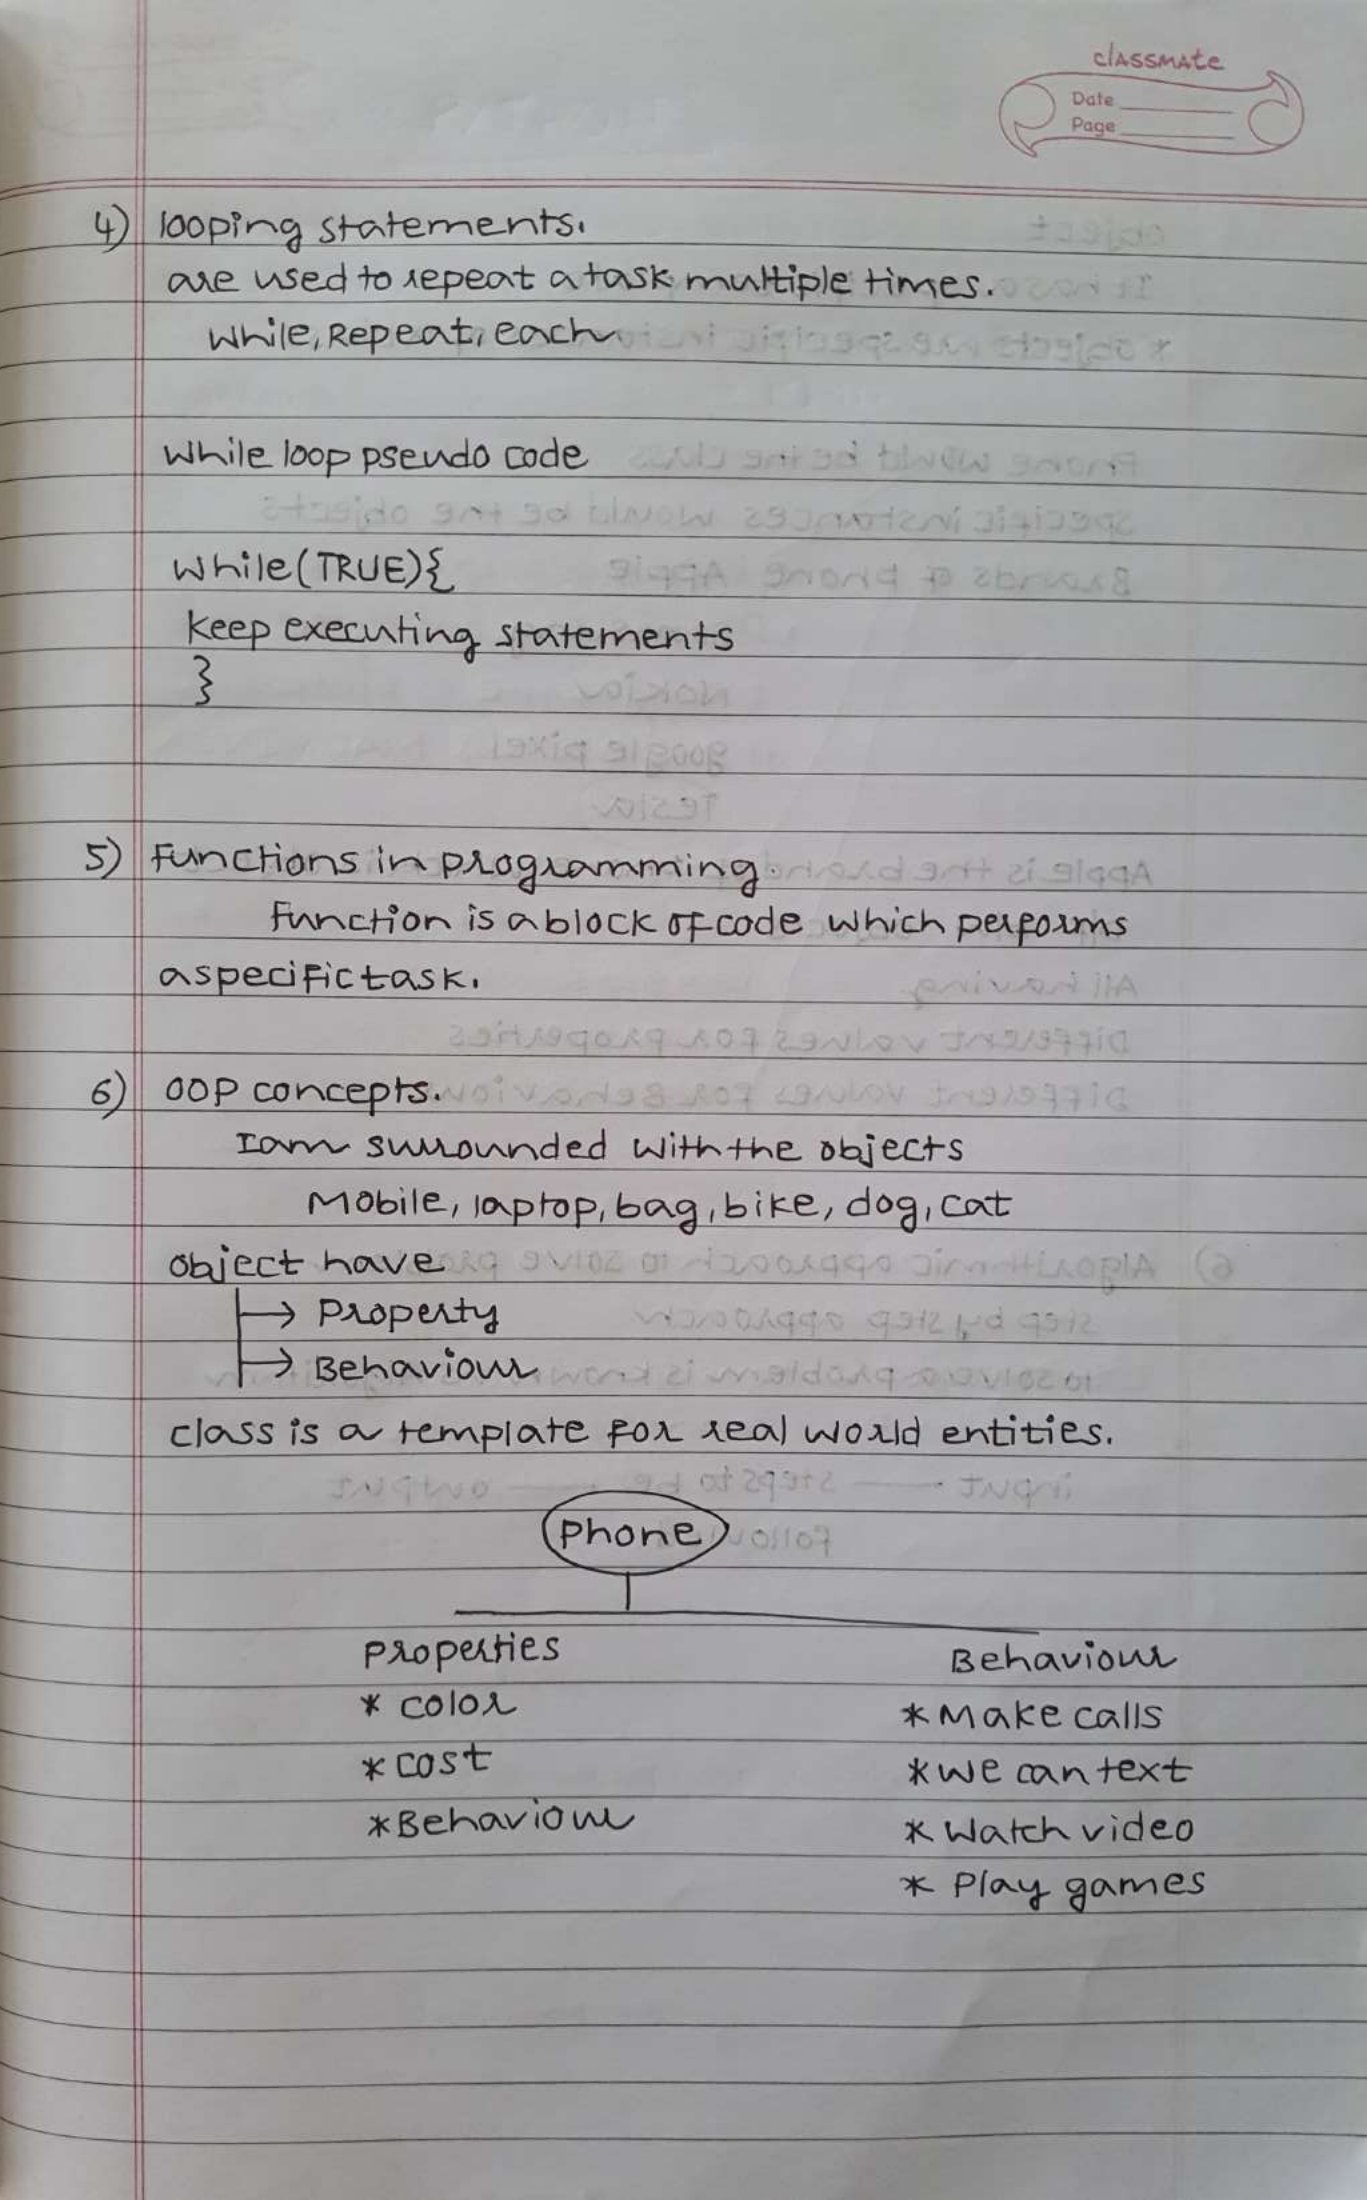 classmate
Date
Page
4) looping statements.
are used to repeat a task multiple times.
While, Repeat, each
While loop pseudo code
While(TRUE){
Keep executing statements
}
5) Functions in programming.
Function is a block of code which performs
a specific task.
6) OOP concepts.
I am surrounded with the objects
Mobile, laptop, bag, bike, dog, cat
object have
→ Property
→ Behaviour
class is a template for real world entities.
Phone
Properties Behaviour
* color * Make calls
* cost * we can text
* Behaviour * Watch video
* Play games